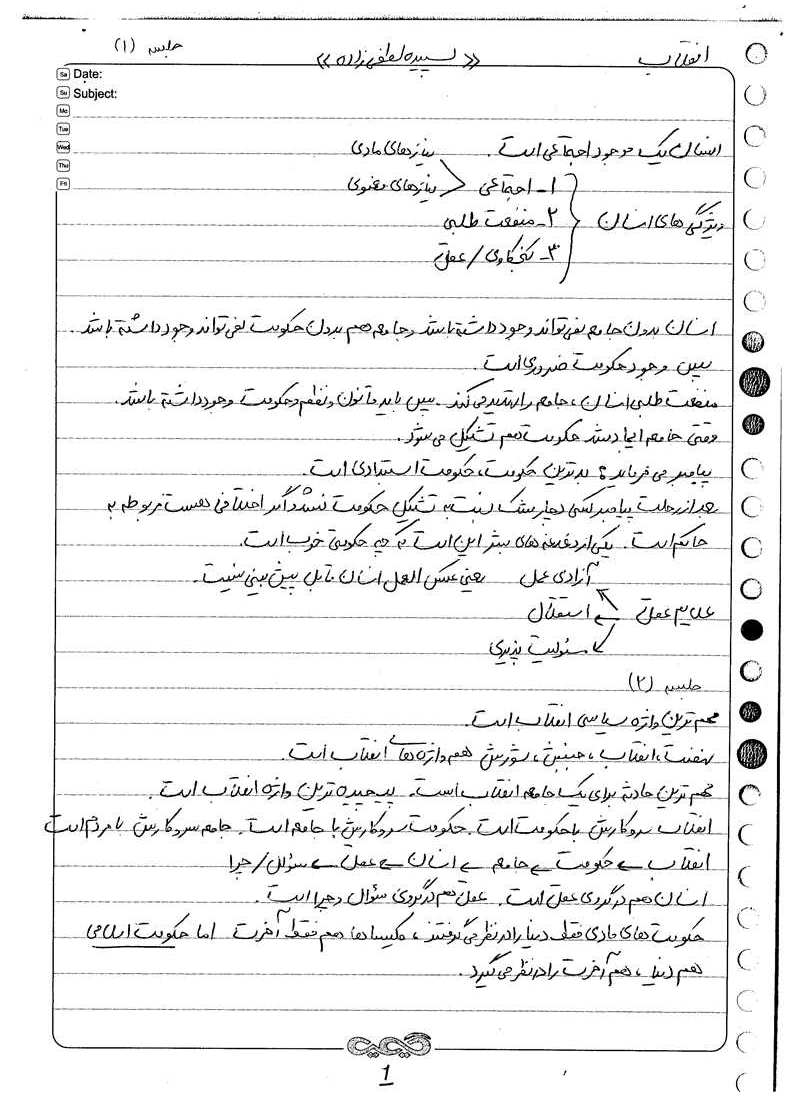 انقلاب «سپیده لطفی‌زاده» جلسه (۱)
Sa Date:
Su Subject:
Mo
Tue
Wed
Thu
Fri
انسان یک موجود اجتماعی است. نیازهای مادی
ویژگی های انسان ۱- اجتماعی < نیازهای معنوی
۲- منفعت طلبی
۳- کنجکاوی / عقلی
انسان بدون جامعه نمی‌تواند وجود داشته باشد و جامعه هم بدون حکومت نمی‌تواند وجود داشته باشد.
پس وجود حکومت ضروری است.
منفعت طلبی انسان، جامعه را تهدید می کند. پس باید قانون و نظم و حکومت وجود داشته باشد.
وقتی جامعه ایجاد شد حکومت هم تشکیل می شود.
پیامبر می فرماید: بدترین حکومت، حکومت استبدادی است.
بعد از رحلت پیامبر کسی دچار شک نسبت به تشکیل حکومت نشد و اگر اختلافی هست مربوطه به
حاکم است. یکی از دغدغه های بشر این است که چه حکومتی خوب است.
آزادی عمل یعنی عکس العمل انسان قابل پیش بینی نیست.
علایم عقلی استقلال
مسئولیت پذیری
جلسه (۲)
مهم ترین واژه سیاسی انقلاب است.
نهضت، انقلاب، جنبش، شورش هم واژه های انقلاب است.
مهم ترین حادثه برای یک جامعه انقلاب است. پیچیده ترین واژه انقلاب است.
انقلاب سروکارش با حکومت است. حکومت سروکارش با جامعه است. جامعه سروکارش با مردم است
انقلاب ← حکومت ← جامعه ← انسان ← عقل ← سؤال / چرا
انسان هم در گروی عقل است. عقل هم در گروی سؤال و چرا است.
حکومت های مادی فقط دنیا را در نظر می گرفتند، کلیساها هم فقط آخرت اما حکومت اسلامی
هم دنیا، هم آخرت را در نظر می گیرد.
1